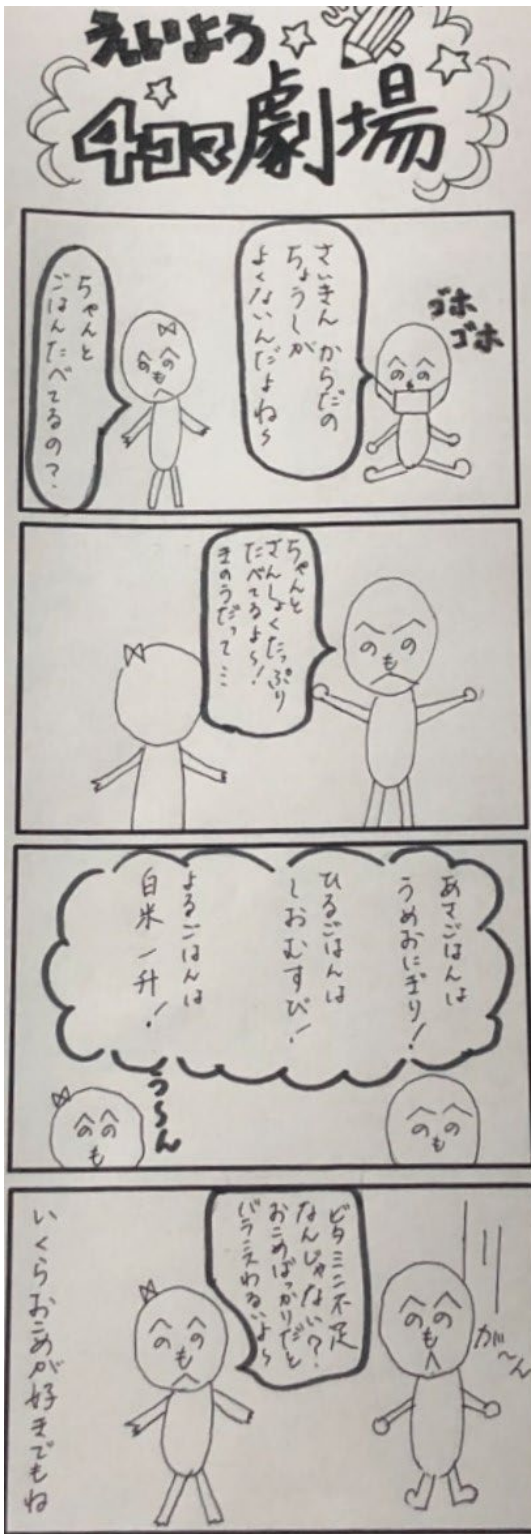 えいよう
4コマ劇場
ゴホ
ゴホ
さいきん からだの
ちょうしが
よくないんだよね〜
ちゃんと
ごはんたべてるの?
ちゃんと
さんしょくたっぷり
たべてるよ〜!
きのうだって…
あさごはんは
うめおにぎり!
ひるごはんは
しおむすび!
よるごはんは
白米一升!
う〜ん
が〜ん
ビタミン不足
なんじゃない?
おこめばっかりだと
バランスわるいよ〜
いくらおこめが好きでもね